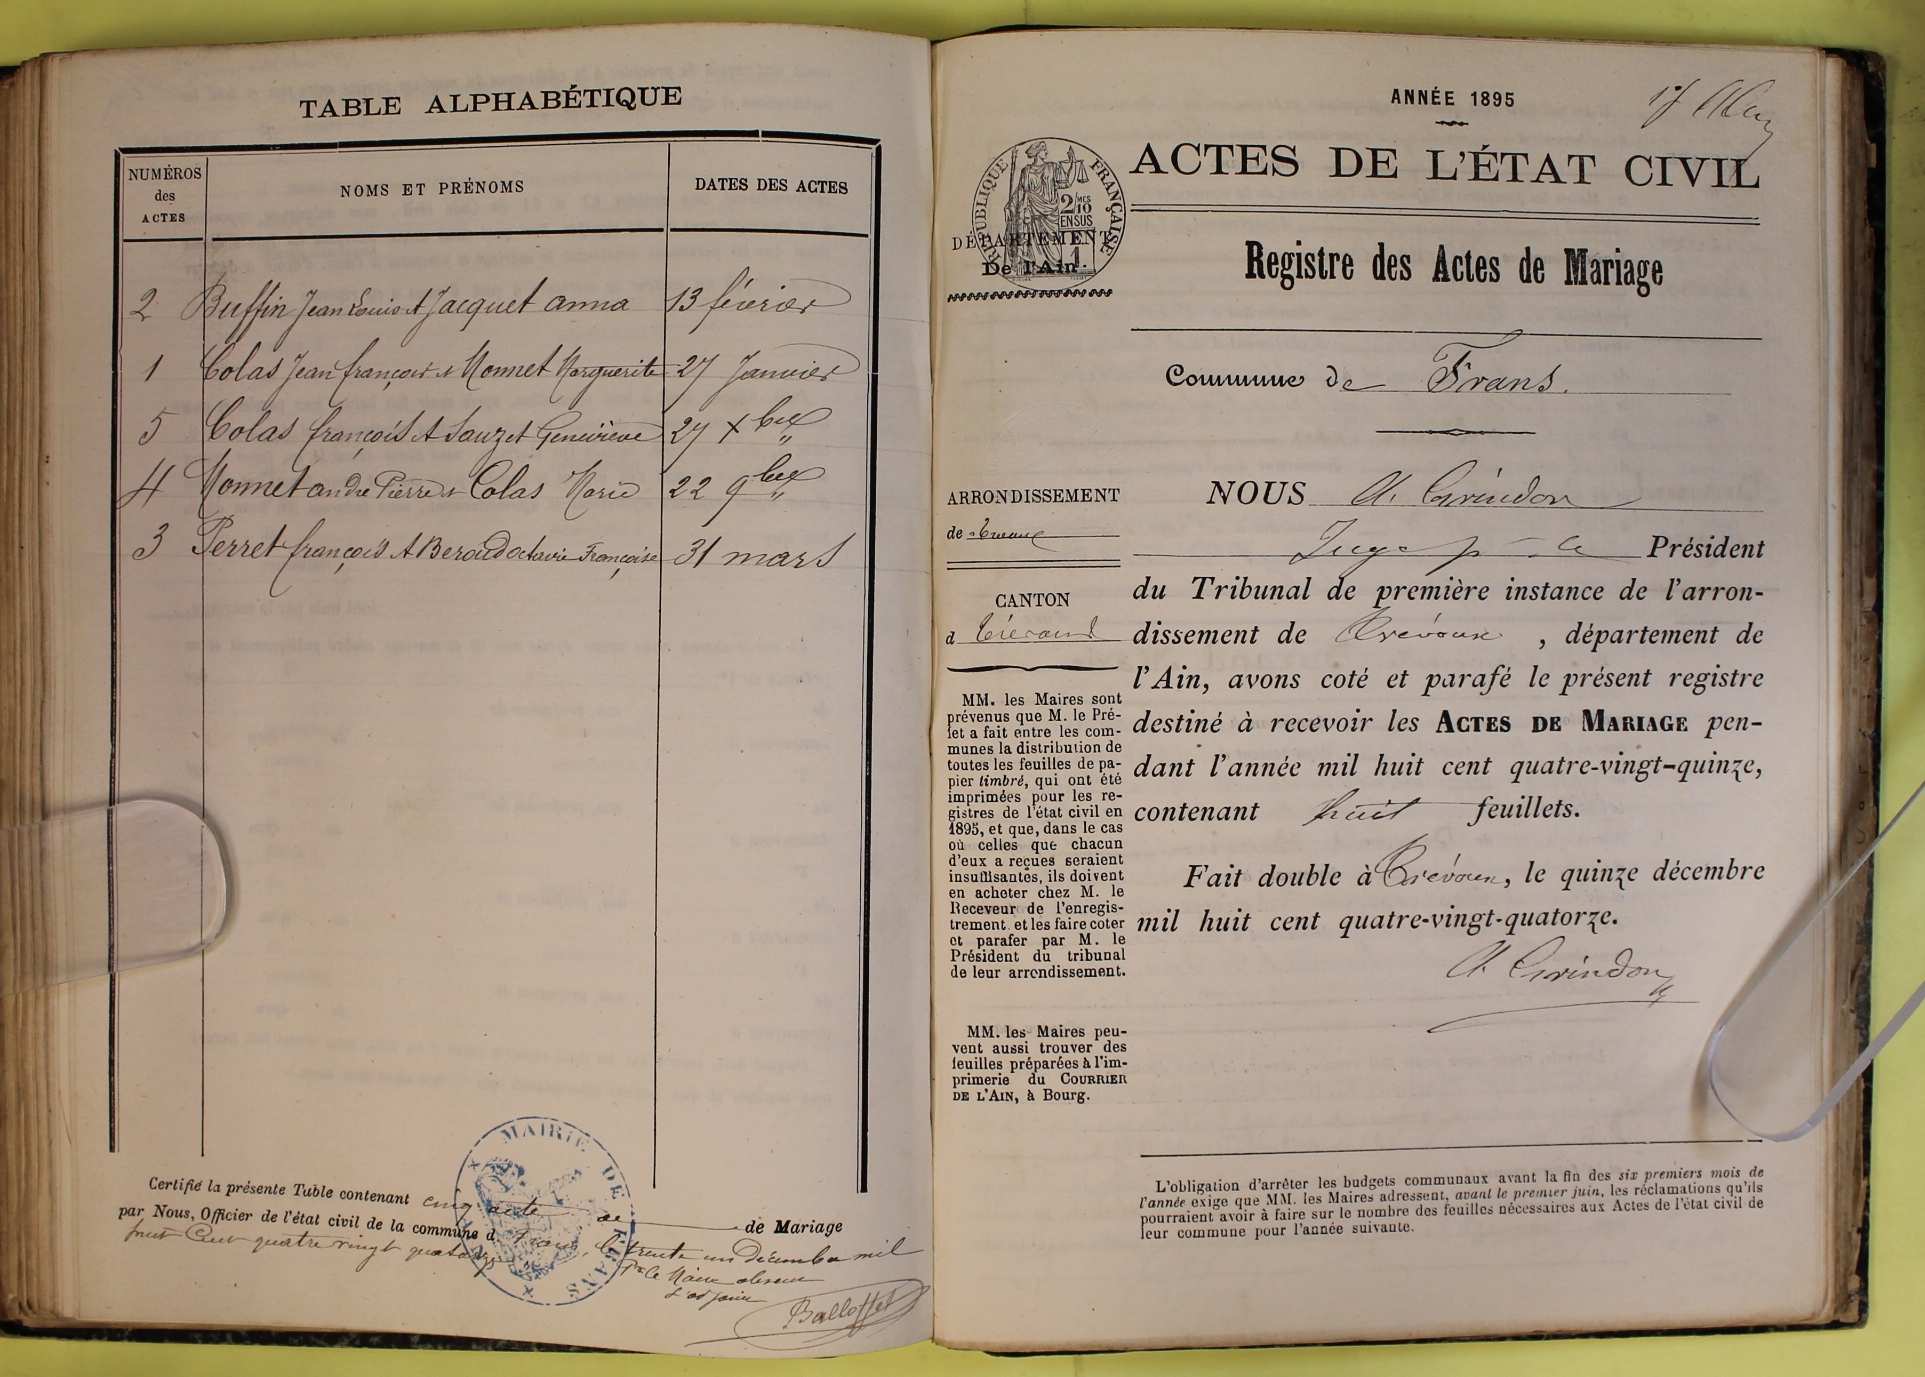 TABLE ALPHABÉTIQUE
NUMÉROS des ACTES
NOMS ET PRÉNOMS
DATES DES ACTES
2 Buffin Jean Louis et Jacquet anna 13 février
1 Colas Jean françois et Monnet Marguerite 27 Janvier
5 Colas françois et Sauzet Geneviève 27 Xbre
4 Monnet andre Pierre et Colas Marie 22 9bre
3 Perret françois et Beroud octavie Françoise 31 mars
Certifié la présente Table contenant cinq acte de de Mariage
par Nous, Officier de l'état civil de la commune d Frans, le trente un Décembre mil
huit Cent quatre vingt quatorze
Pr le Maire absent
L'adjoint
Balloffet
MAIRIE DE FRANS
ANNÉE 1895
ACTES DE L'ÉTAT CIVIL
RÉPUBLIQUE FRANÇAISE
2 MES 10
EN SUS
DÉPARTEMENT
De l'Ain
Registre des Actes de Mariage
Commune de Frans.
ARRONDISSEMENT
de Trévoux
CANTON
d Trévoux
MM. les Maires sont
prévenus que M. le Pré-
fet a fait entre les com-
munes la distribution de
toutes les feuilles de pa-
pier timbré, qui ont été
imprimées pour les re-
gistres de l'état civil en
1895, et que, dans le cas
où celles que chacun
d'eux a reçues seraient
insuffisantes, ils doivent
en acheter chez M. le
Receveur de l'enregis-
trement et les faire coter
et parafer par M. le
Président du tribunal
de leur arrondissement.
MM. les Maires peu-
vent aussi trouver des
feuilles préparées à l'im-
primerie du COURRIER
DE L'AIN, à Bourg.
NOUS A. Grindon
Juge pr le Président
du Tribunal de première instance de l'arron-
dissement de Trévoux, département de
l'Ain, avons coté et parafé le présent registre
destiné à recevoir les ACTES DE MARIAGE pen-
dant l'année mil huit cent quatre-vingt-quinze,
contenant huit feuillets.
Fait double à Trévoux, le quinze décembre
mil huit cent quatre-vingt-quatorze.
A. Grindon
L'obligation d'arrêter les budgets communaux avant la fin des six premiers mois de
l'année exige que MM. les Maires adressent, avant le premier juin, les réclamations qu'ils
pourraient avoir à faire sur le nombre des feuilles nécessaires aux Actes de l'état civil de
leur commune pour l'année suivante.